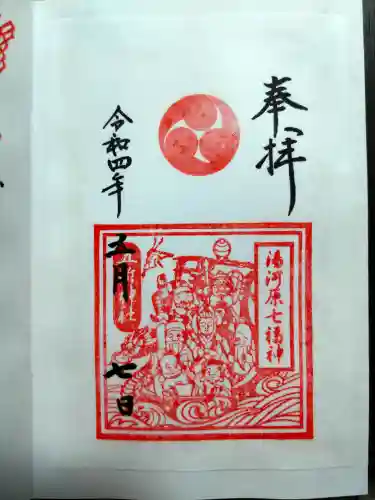 奉拝
令和四年
五月
七日
湯河原七福神